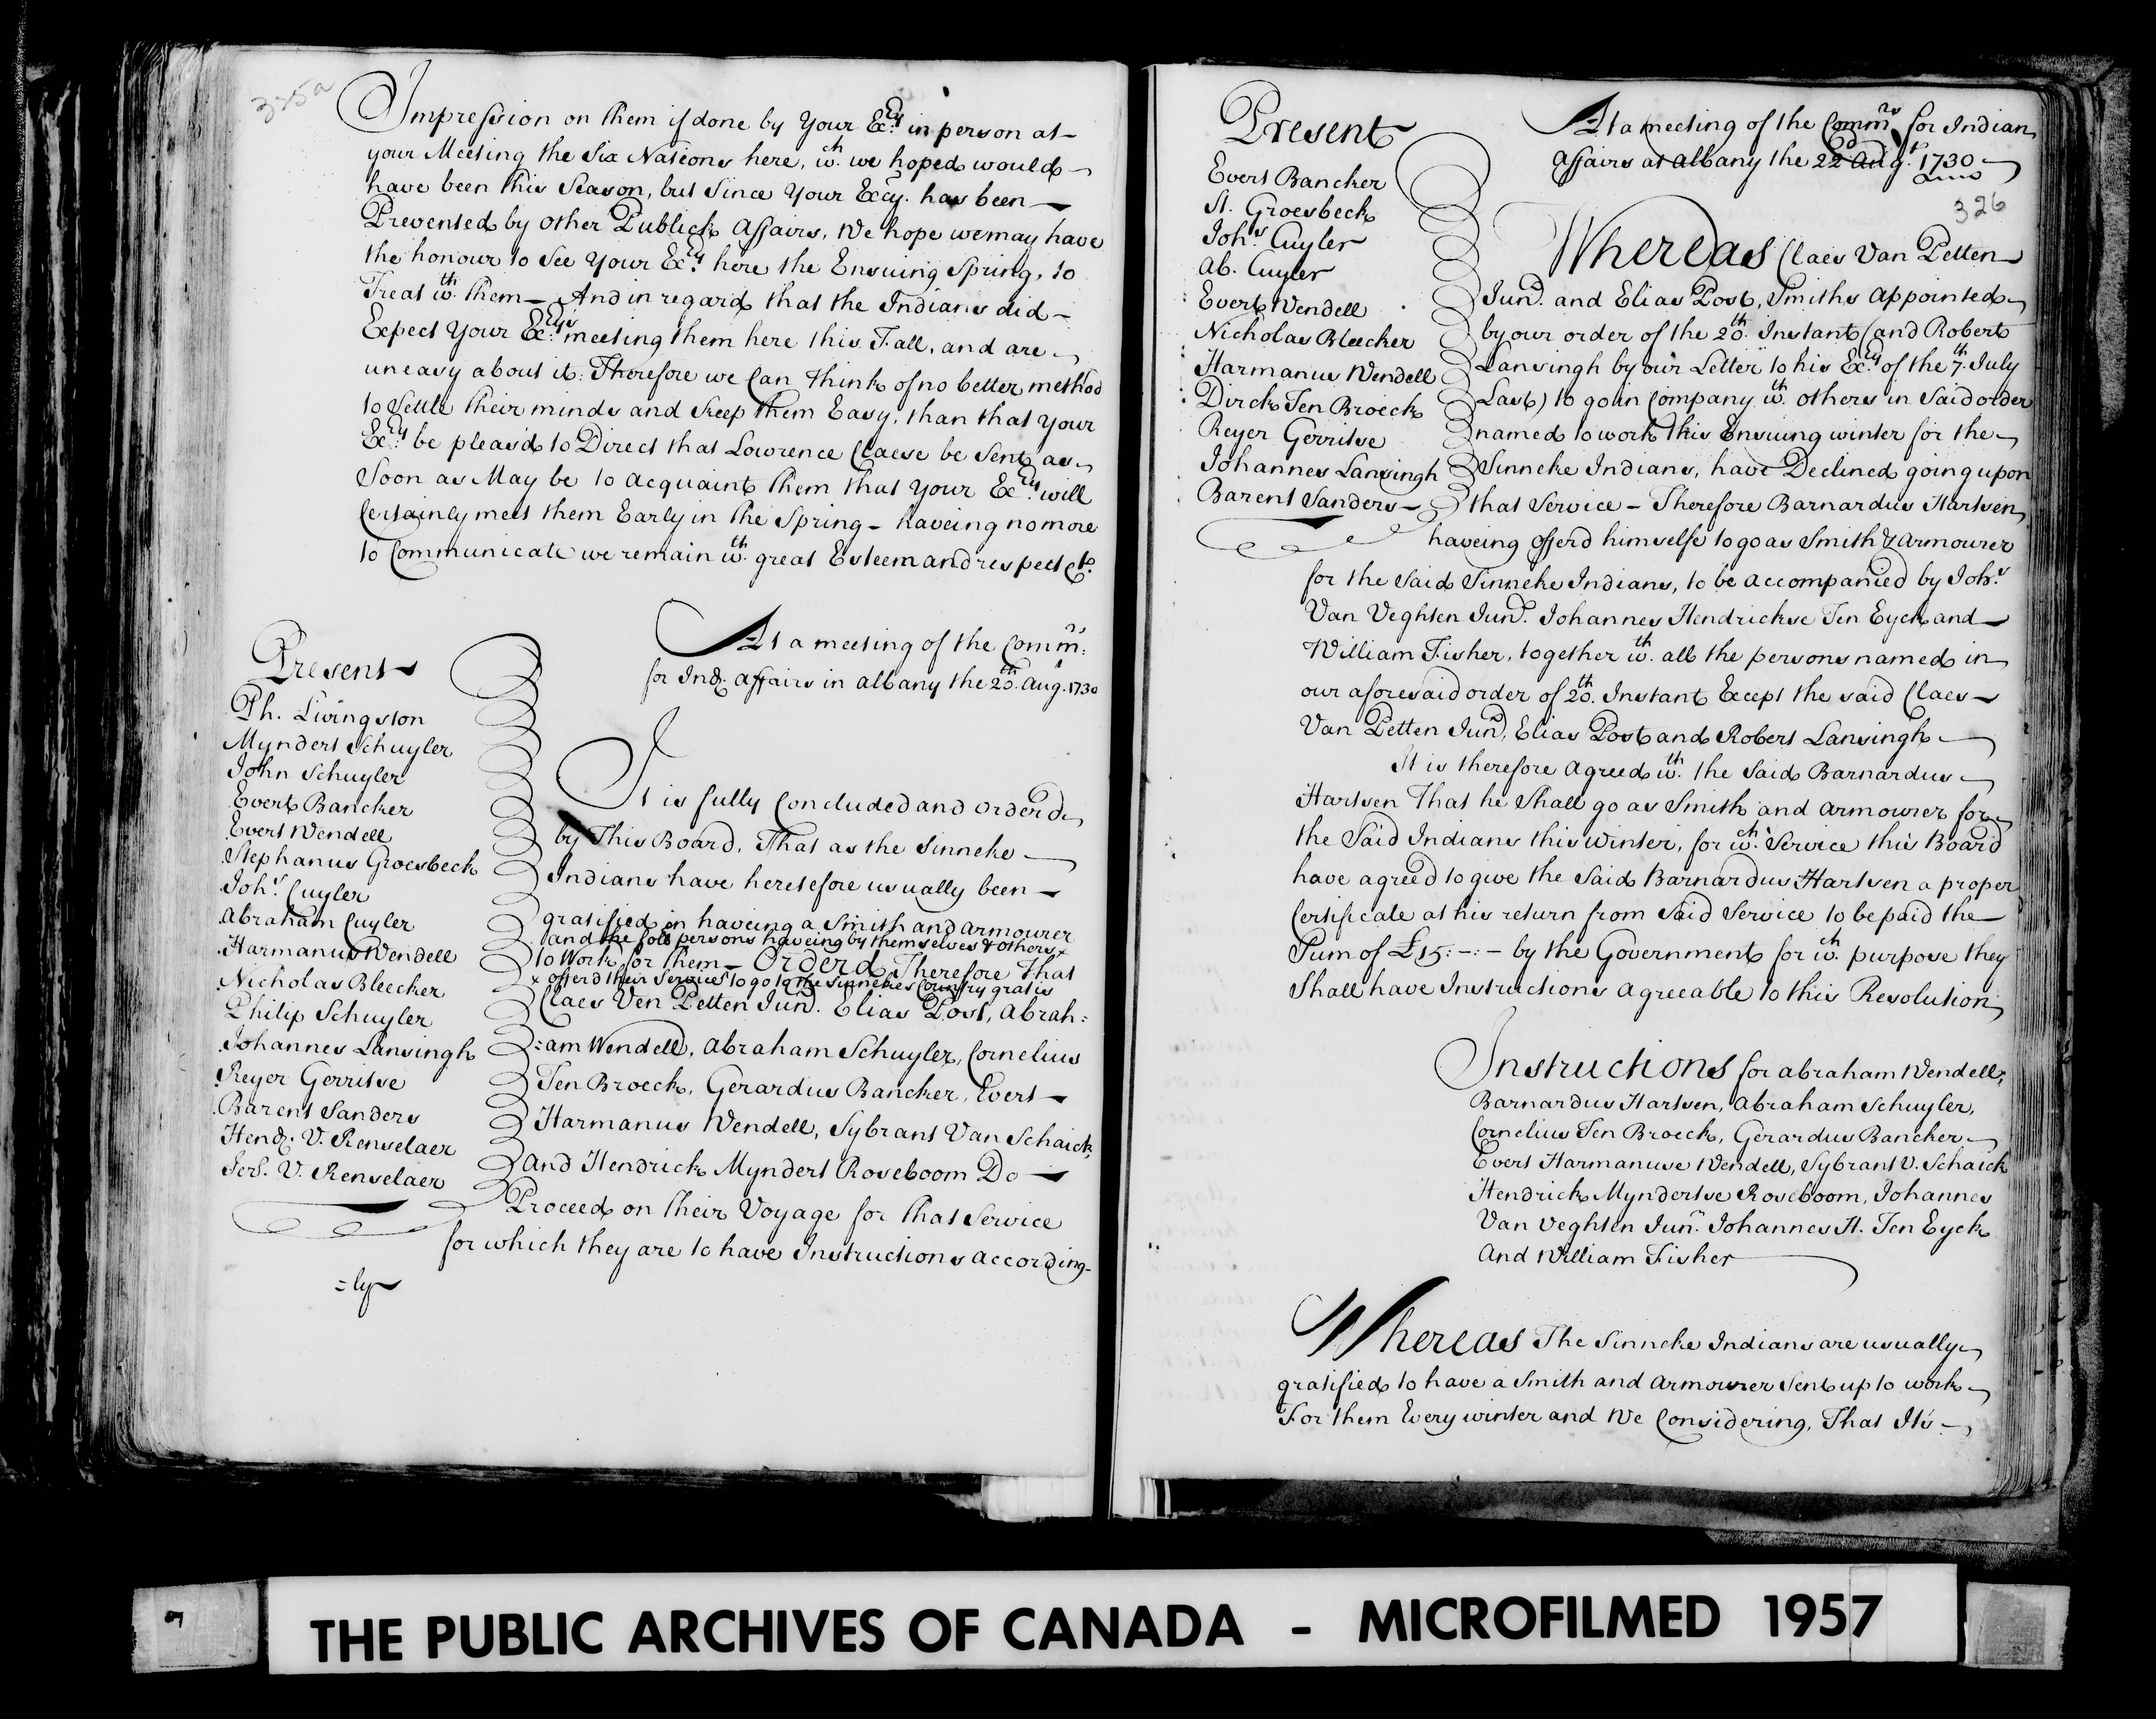 325a
Impression on them if done by Your Excy. in person at
your Meeting the Six Nations here, wth. we hoped would
have been this Season, but Since Your Excy. has been
Prevented by other Publick Affairs, We hope we may have
the honour to See Your Excy. here the Ensuing Spring, to
Treat wth. them – And in regard that the Indians did
Expect Your Excys. meeting them here this Fall, and are
uneasy about it: Therefore we Can think of no better method
to Settle their minds and keep them Easy, than that Your
Excy. be pleasd to Direct that Lowrence Claese be Sent as
Soon as May be to acquaint them that Your Excy. will
Certainly meet them Early in the Spring – haveing no more
to Communicate we remain wth. great Esteem and respect &c.
At a meeting of the Commrs.
for Indn. affairs in albany the 20th. Aug. 1730
Present
Ph. Livingston
Myndert Schuyler
John Schuyler
Evert Bancker
Evert Wendell
Stephanus Groesbeck
Johs. Cuyler
Abraham Cuyler
Harmanus Wendell
Nicholas Bleecker
Philip Schuyler
Johannes Lansingh
Reyer Gerritse
Barent Sanders
Hendr. V. Renselaer
Jer. V. Renselaer
It is fully Concluded and orderd
by This Board, That as the Sinneke
Indians have heretefore usually been
gratified in haveing a Smith and armourer
and the foll persons haveing by themselves & others x
to Work for them – Orderd Therefore That
x offerd their Service to go to the Sinnekes Country gratis
Claes Ven Petten Junr. Elias Post, Abrah:
:am Wendell, Abraham Schuyler, Cornelius
Ten Broeck, Gerardus Bancker, Evert
Harmanus Wendell, Sybrant Van Schaick,
and Hendrick Myndert Roseboom Do
Proceed on their Voyage for that Service
for which they are to have Instructions according
=ly
Present
Evert Bancker
St. Groesbeck
Johs. Cuyler
Ab. Cuyler
Evert Wendell
Nicholas Bleecker
Harmanus Wendell
Dirck Ten Broeck
Reyer Gerritse
Johannes Lansingh
Barent Sanders
At a meeting of the Commrs. for Indian
Affairs at Albany the 22d Augt. 1730
326
Whereas Claes Van Petten
Junr. and Elias Post, Smiths Appointed
by our order of the 20th. Instant (and Robert
Lansingh by our Letter to his Excy. of the 7th. July
Last) to go in Company wth. others in Said order
named to work this Ensuing winter for the
Sinneke Indians, have Declined going upon
that Service – Therefore Barnardus Hartsen
haveing offerd himselfe to go as Smith & Armourer
for the Said Sinneke Indians, to be accompanied by Johs.
Van Veghten Junr. Johannes Hendrickse Ten Eyck and
William Fisher, together wth. all the persons named in
our aforesaid order of 20th. Instant Except the said Claes
Van Petten Junr, Elias Post and Robert Lansingh
It is therefore agreed wth. the Said Barnardus
Hartsen That he Shall go as Smith and Armourer for
the Said Indians this Winter, for wch. Service this Board
have agreed to give the Said Barnardus Hartsen a proper
Certificate at his return from Said Service to be paid the
Sum of £15:-:- by the Government for wch. purpose they
Shall have Instructions agreeable to this Resolution
Instructions for Abraham Wendell,
Barnardus Hartsen, Abraham Schuyler,
Cornelius Ten Broeck, Gerardus Bancker
Evert Harmanuse Wendell, Sybrant V. Schaick
Hendrick Myndertse Roseboom, Johannes
Van Veghten Junr. Johannes H. Ten Eyck
And William Fisher
Whereas The Sinneke Indians are usually
gratified to have a Smith and Armourer Sent up to work
For them Every winter and We Considering, That Its
THE PUBLIC ARCHIVES OF CANADA - MICROFILMED 1957